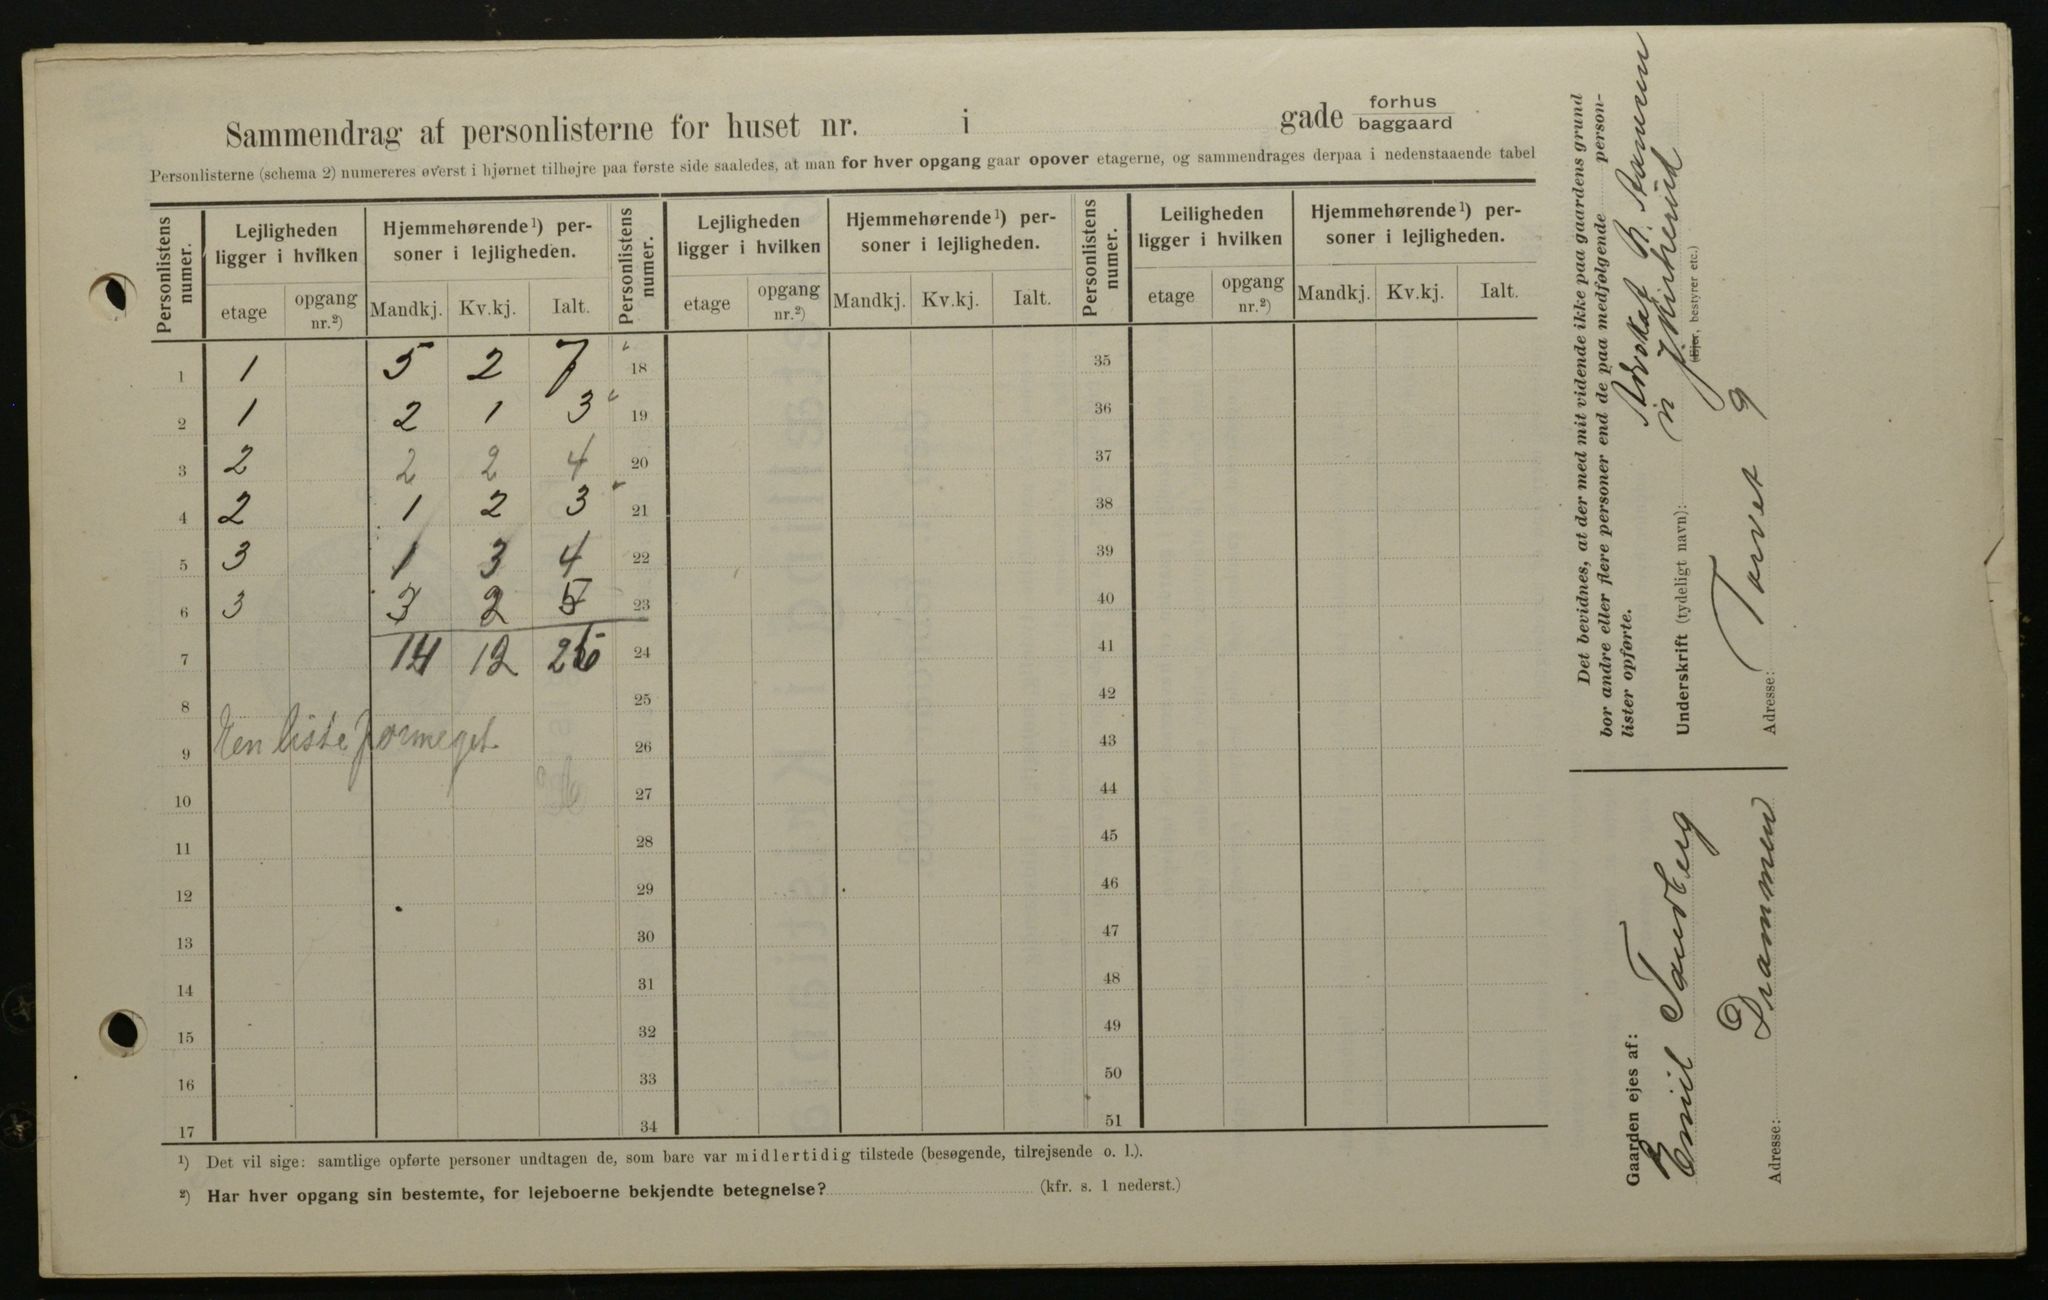 Sammendrag af personlisterne for huset nr. i gade forhus baggaard
Personlisterne (schema 2) numereres øverst i hjørnet tilhøjre paa første side saaledes, at man for hver opgang gaar opover etagerne, og sammendrages derpaa i nedenstaaende tabel
Personlistens numer. Lejligheden ligger i hvilken Hjemmehørende ¹) personer i lejligheden. Personlistens numer. Lejligheden ligger i hvilken Hjemmehørende ¹) personer i lejligheden. Personlistens numer. Leiligheden ligger i hvilken Hjemmehørende ¹) personer i lejligheden.
etage opgang nr.²) Mandkj. Kv.kj. Ialt. etage opgang nr.²) Mandkj. Kv.kj. Ialt. etage opgang nr.²) Mandkj. Kv.kj. Ialt.
1 1 5 2 7 18 35
2 1 2 1 3 19 36
3 2 2 2 4 20 37
4 2 1 2 3 21 38
5 3 1 3 4 22 39
6 3 3 2 5 23 40
7 14 12 26 24 41
8 25 42
9 26 43
Een liste formeget
10 27 44
11 28 45
12 29 46
13 30 47
14 31 48
15 32 49
16 33 50
17 34 51
¹) Det vil sige: samtlige opførte personer undtagen de, som bare var midlertidig tilstede (besøgende, tilrejsende o. l.).
²) Har hver opgang sin bestemte, for lejeboerne bekjendte betegnelse? (kfr. s. 1 nederst.)
Det bevidnes, at der med mit vidende ikke paa gaardens grund
bor andre eller flere personer end de paa medfølgende personlister opførte.
Advokat B.
Underskrift (tydeligt navn):
(Ejer, bestyrer etc.)
Adresse: Torvet 9
Gaarden ejes af:
Emil Tandberg
Adresse: Drammen